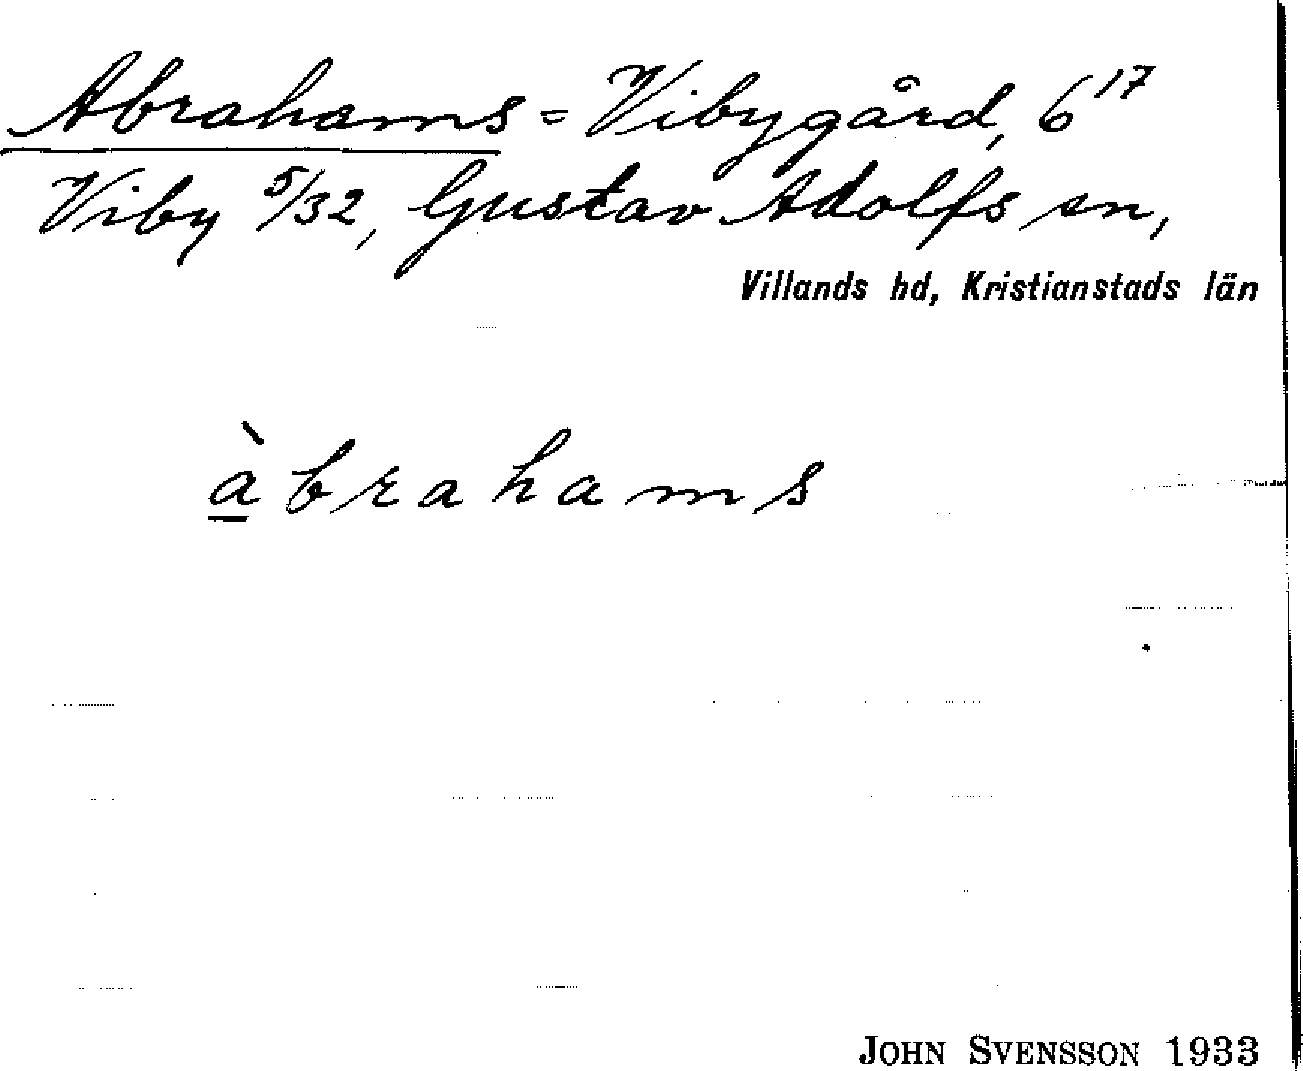 Abrahams = Vibygård, 6¹⁷
Viby 5/32, Gustav Adolfs sn,
Villands hd, Kristianstads län
à̱brahams
JOHN SVENSSON 1933